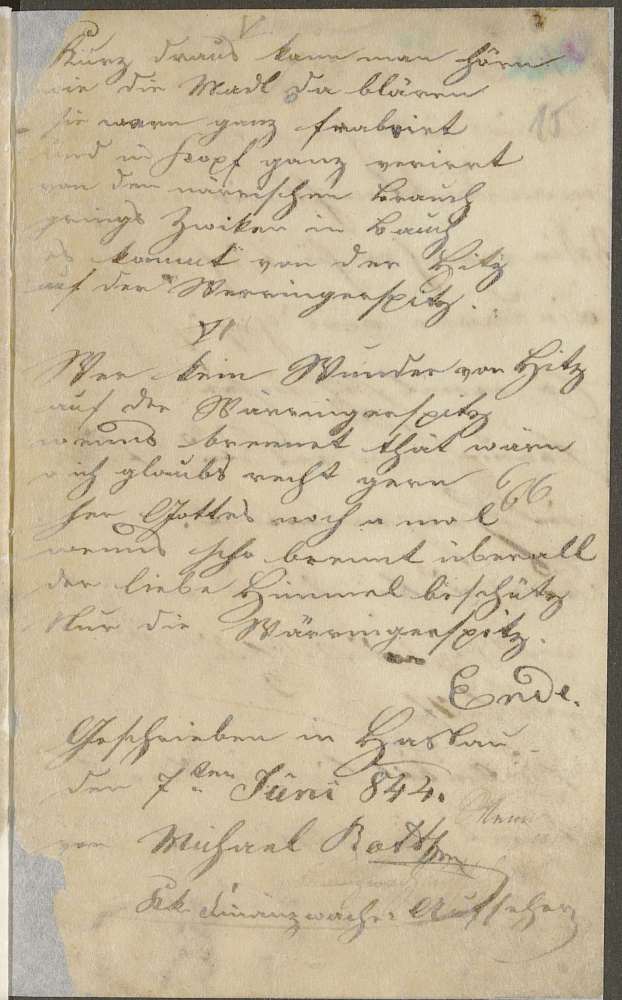 V
Kurz draus kann man hören
wie die Madl da blären
sie waren ganz
und im Kopf ganz verirrt
von dem närrischen Brauch
Zwiken im Bauch
es kommt von der Hitz
auf der Werringerspitz.
VI
Wer kein Wunder von Hitz
auf der Wärringerspitz
wenns brennet thät wärn
ich glaubs recht gern 666.
Gottes noch a mol
wenns scho brennt überall
der liebe Himmel beschütz
Nur die Wärringerspitz.
Ende.
Geschrieben in Haslau
den 7ten Juni 844.
von Michael
kk. Finanzwache Aufseher
15